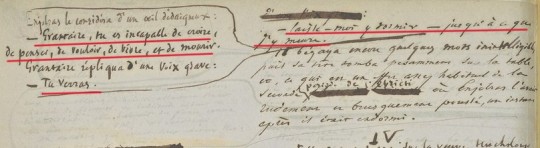 Enjolras le considéra d'un œil dédaigneux:
— Grantaire, tu es incapable de croire,
de penser, de vouloir, de vivre, et de mourir.
Grantaire répliqua d'une voix grave:
— Tu verras.
— laisse-moi y dormir — jusqu'à ce que
j'y meure.
Il bégaya encore quelques mots inintelligibles,
puis sa tête tomba pesamment sur la table
ce qui est un effet assez habituel de la
seconde période de l'ébriété où Enjolras l'avait
rudement et brusquement poussé, un instant
après il était endormi.
IV
la veuve Hucheloup